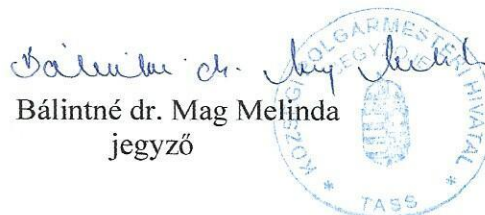 Bálintné dr. Mag Melinda
Bálintné dr. Mag Melinda
jegyző
KÖZSÉGI POLGÁRMESTERI HIVATAL
JEGYZŐJE
* TASS *